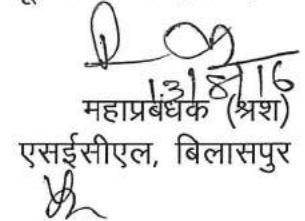 13/8/16
महाप्रबंधक (श्रश)
एसईसीएल, बिलासपुर